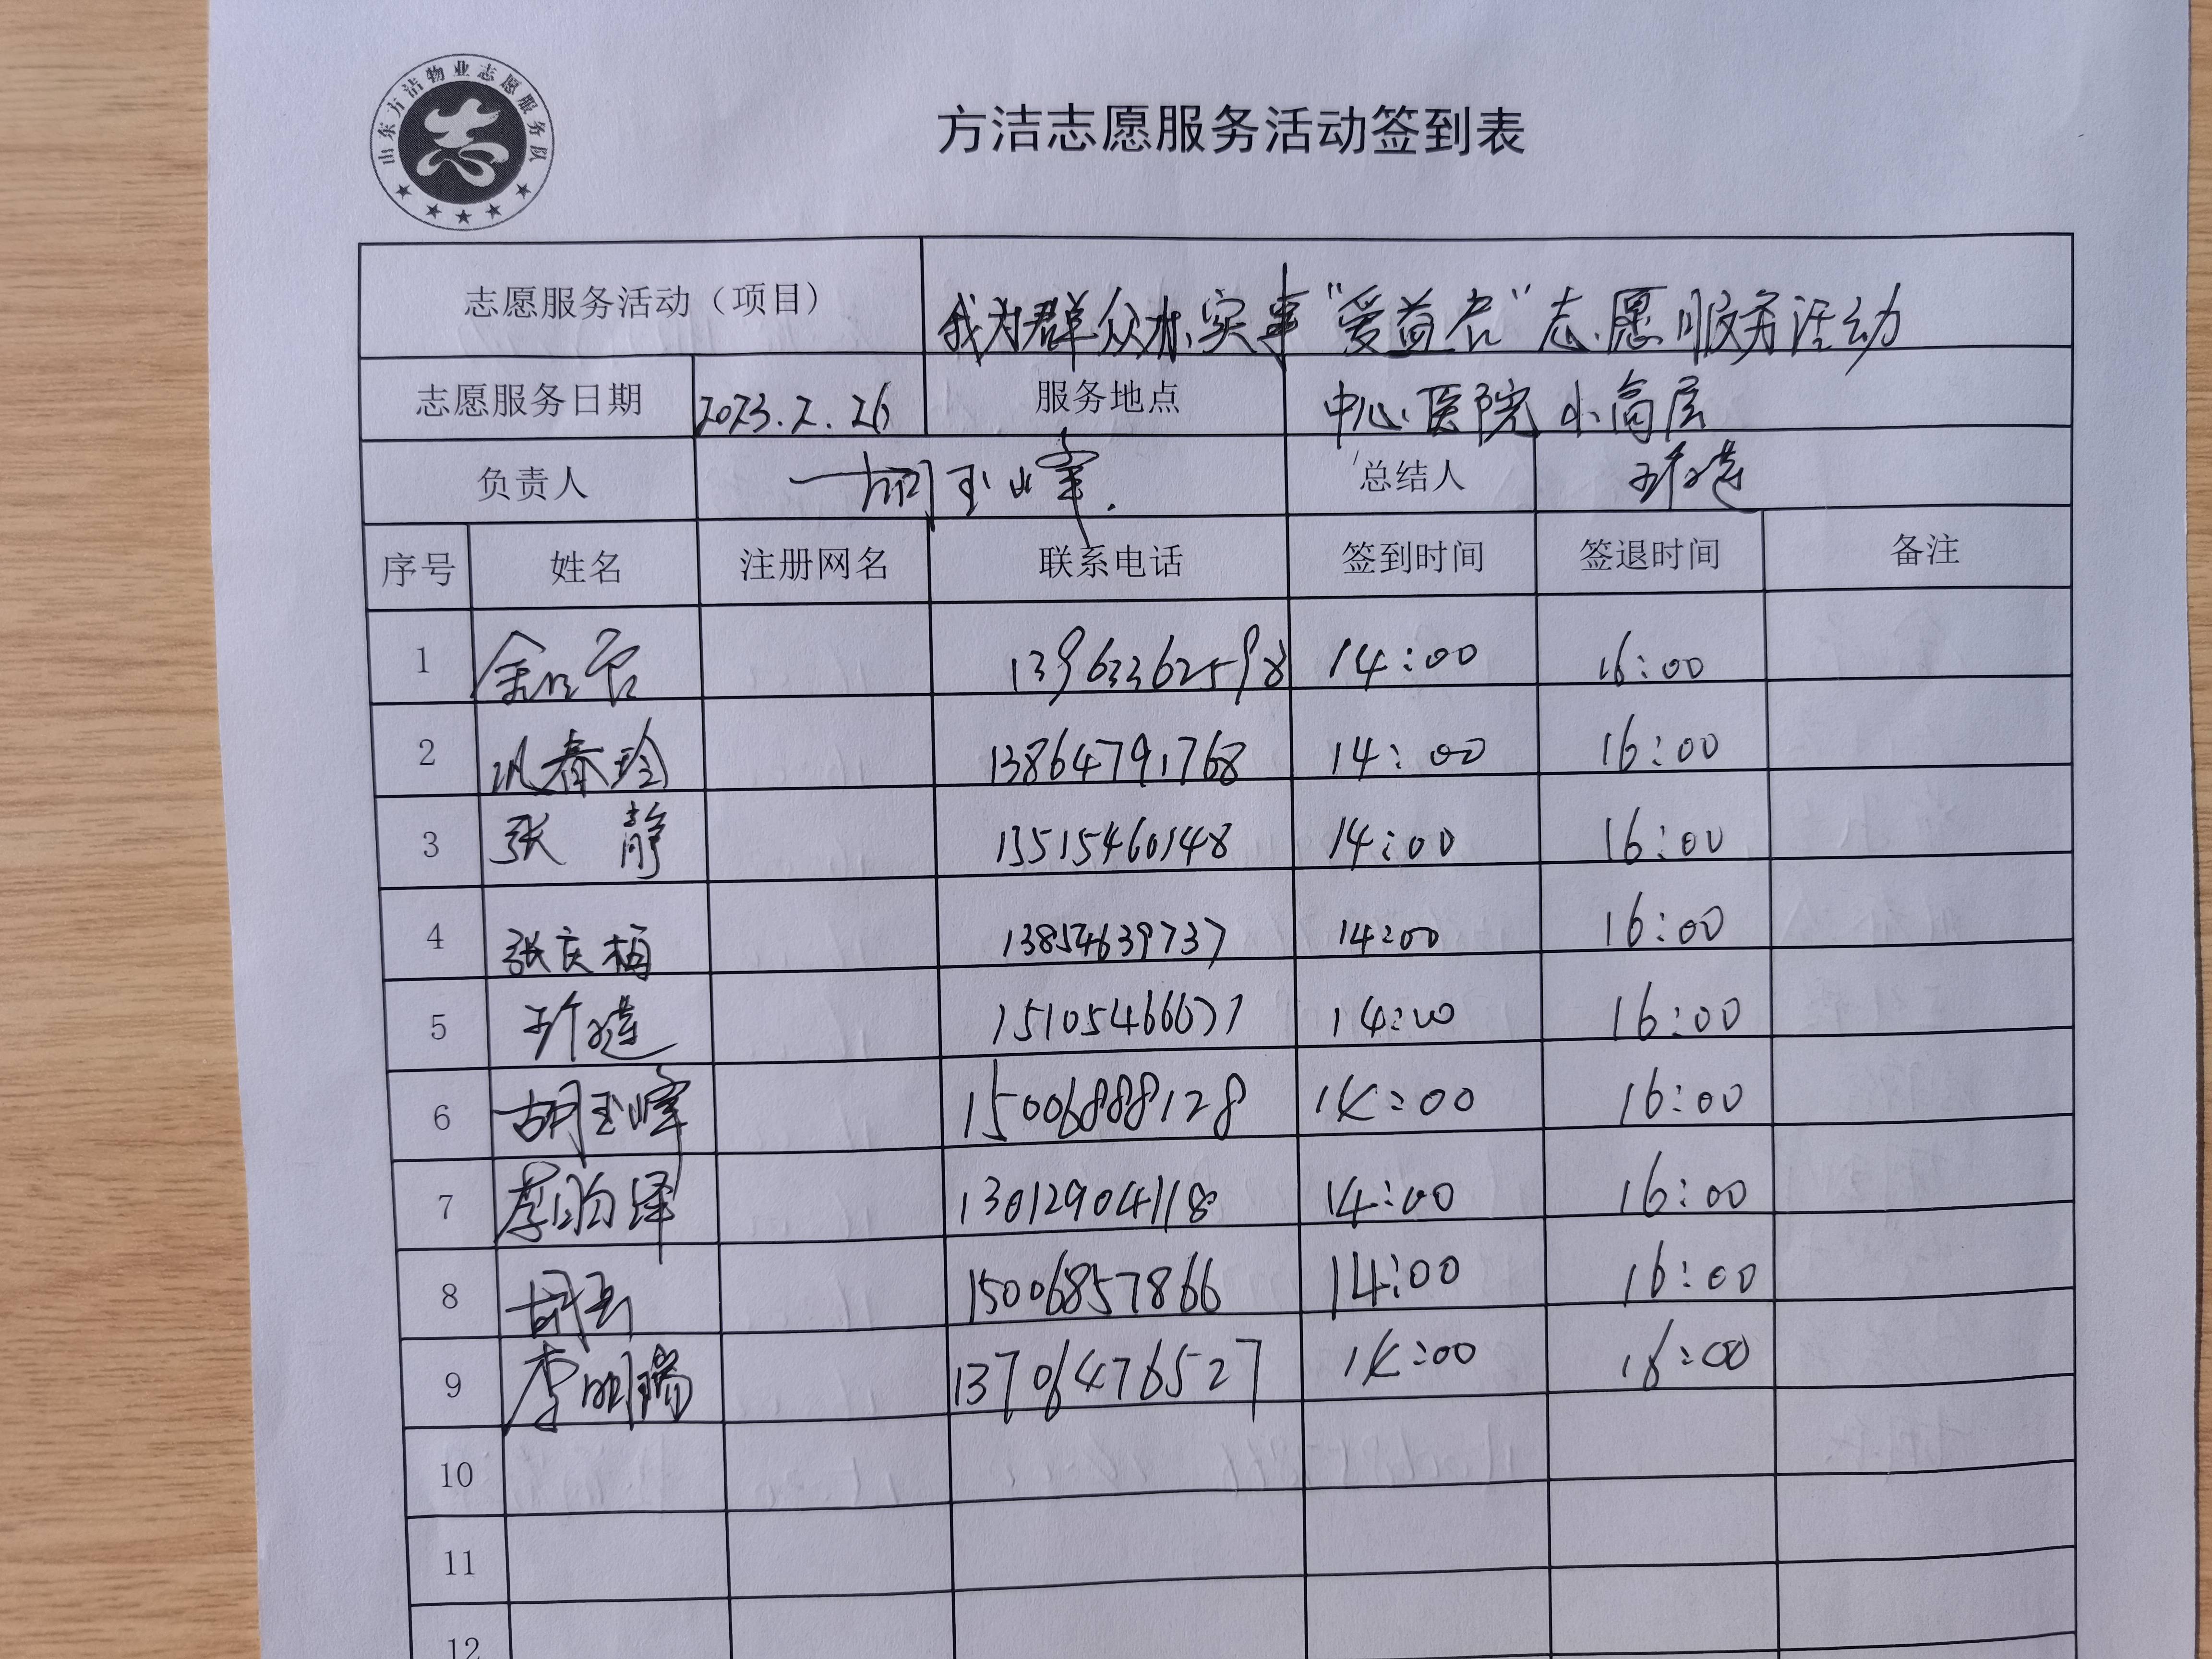 山东方洁物业志愿服务队
方洁志愿服务活动签到表
志愿服务活动（项目） 我为群众办实事“爱益客”志愿服务活动
志愿服务日期 2023.2.26 服务地点 中心医院小高层
负责人 胡玉峰 总结人
序号 姓名 注册网名 联系电话 签到时间 签退时间 备注
1 13963362598 14:00 16:00
2 巩春玲 13864791768 14:00 16:00
3 张静 13515460148 14:00 16:00
4 张庆梅 13854639737 14:00 16:00
5 14:00 16:00
6 胡玉峰 15006888128 14:00 16:00
7 13012904118 14:00 16:00
8 15006857866 14:00 16:00
9 李明瑞 13706476527 14:00 16:00
10
11
12